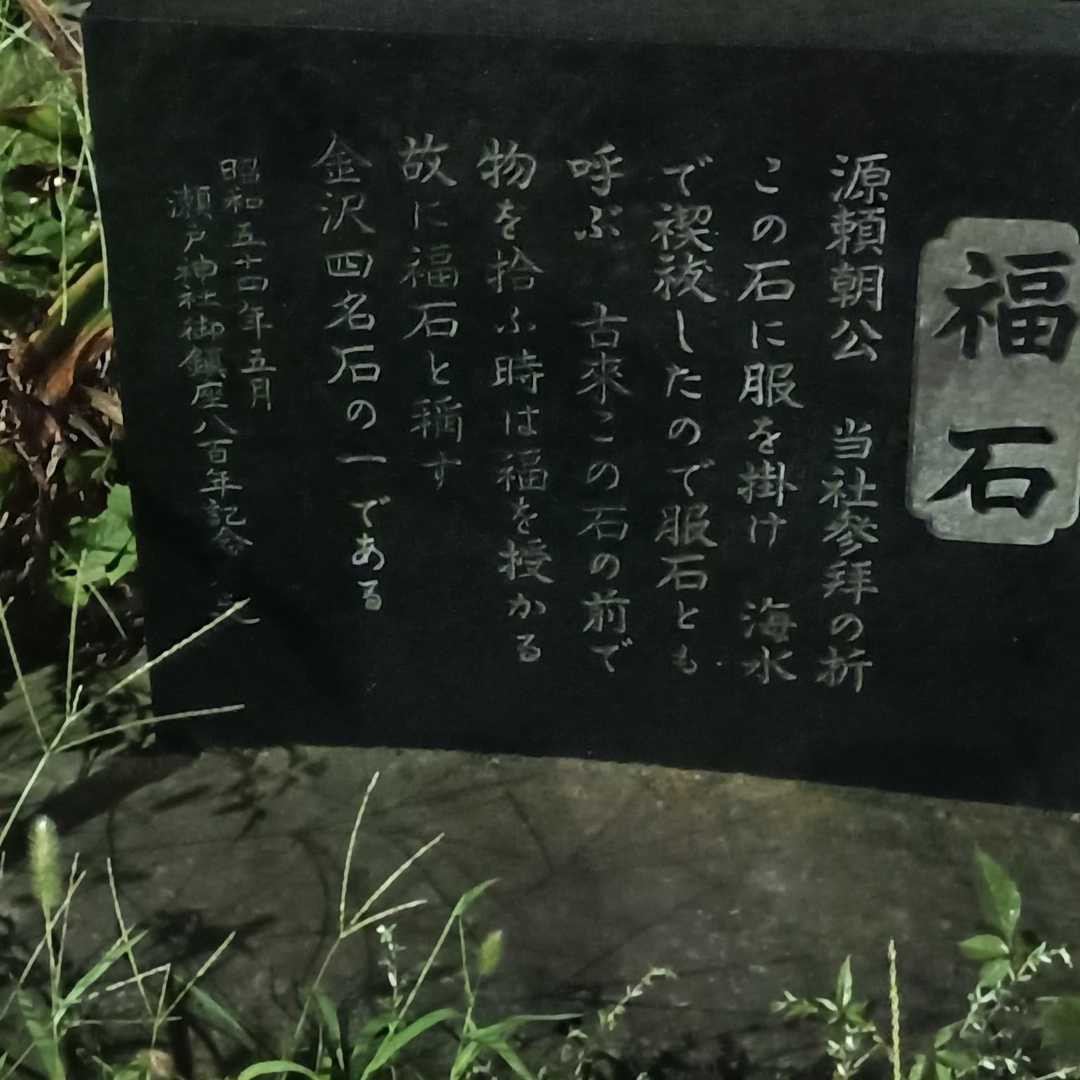 福石
源頼朝公 当社参拜の折
この石に服を掛け 海水
で禊祓したので服石とも
呼ぶ 古來この石の前で
物を拾ふ時は福を授かる
故に福石と稱す
金沢四名石の一である
昭和五十四年五月
瀬戸神社御鎮座八百年記念 之